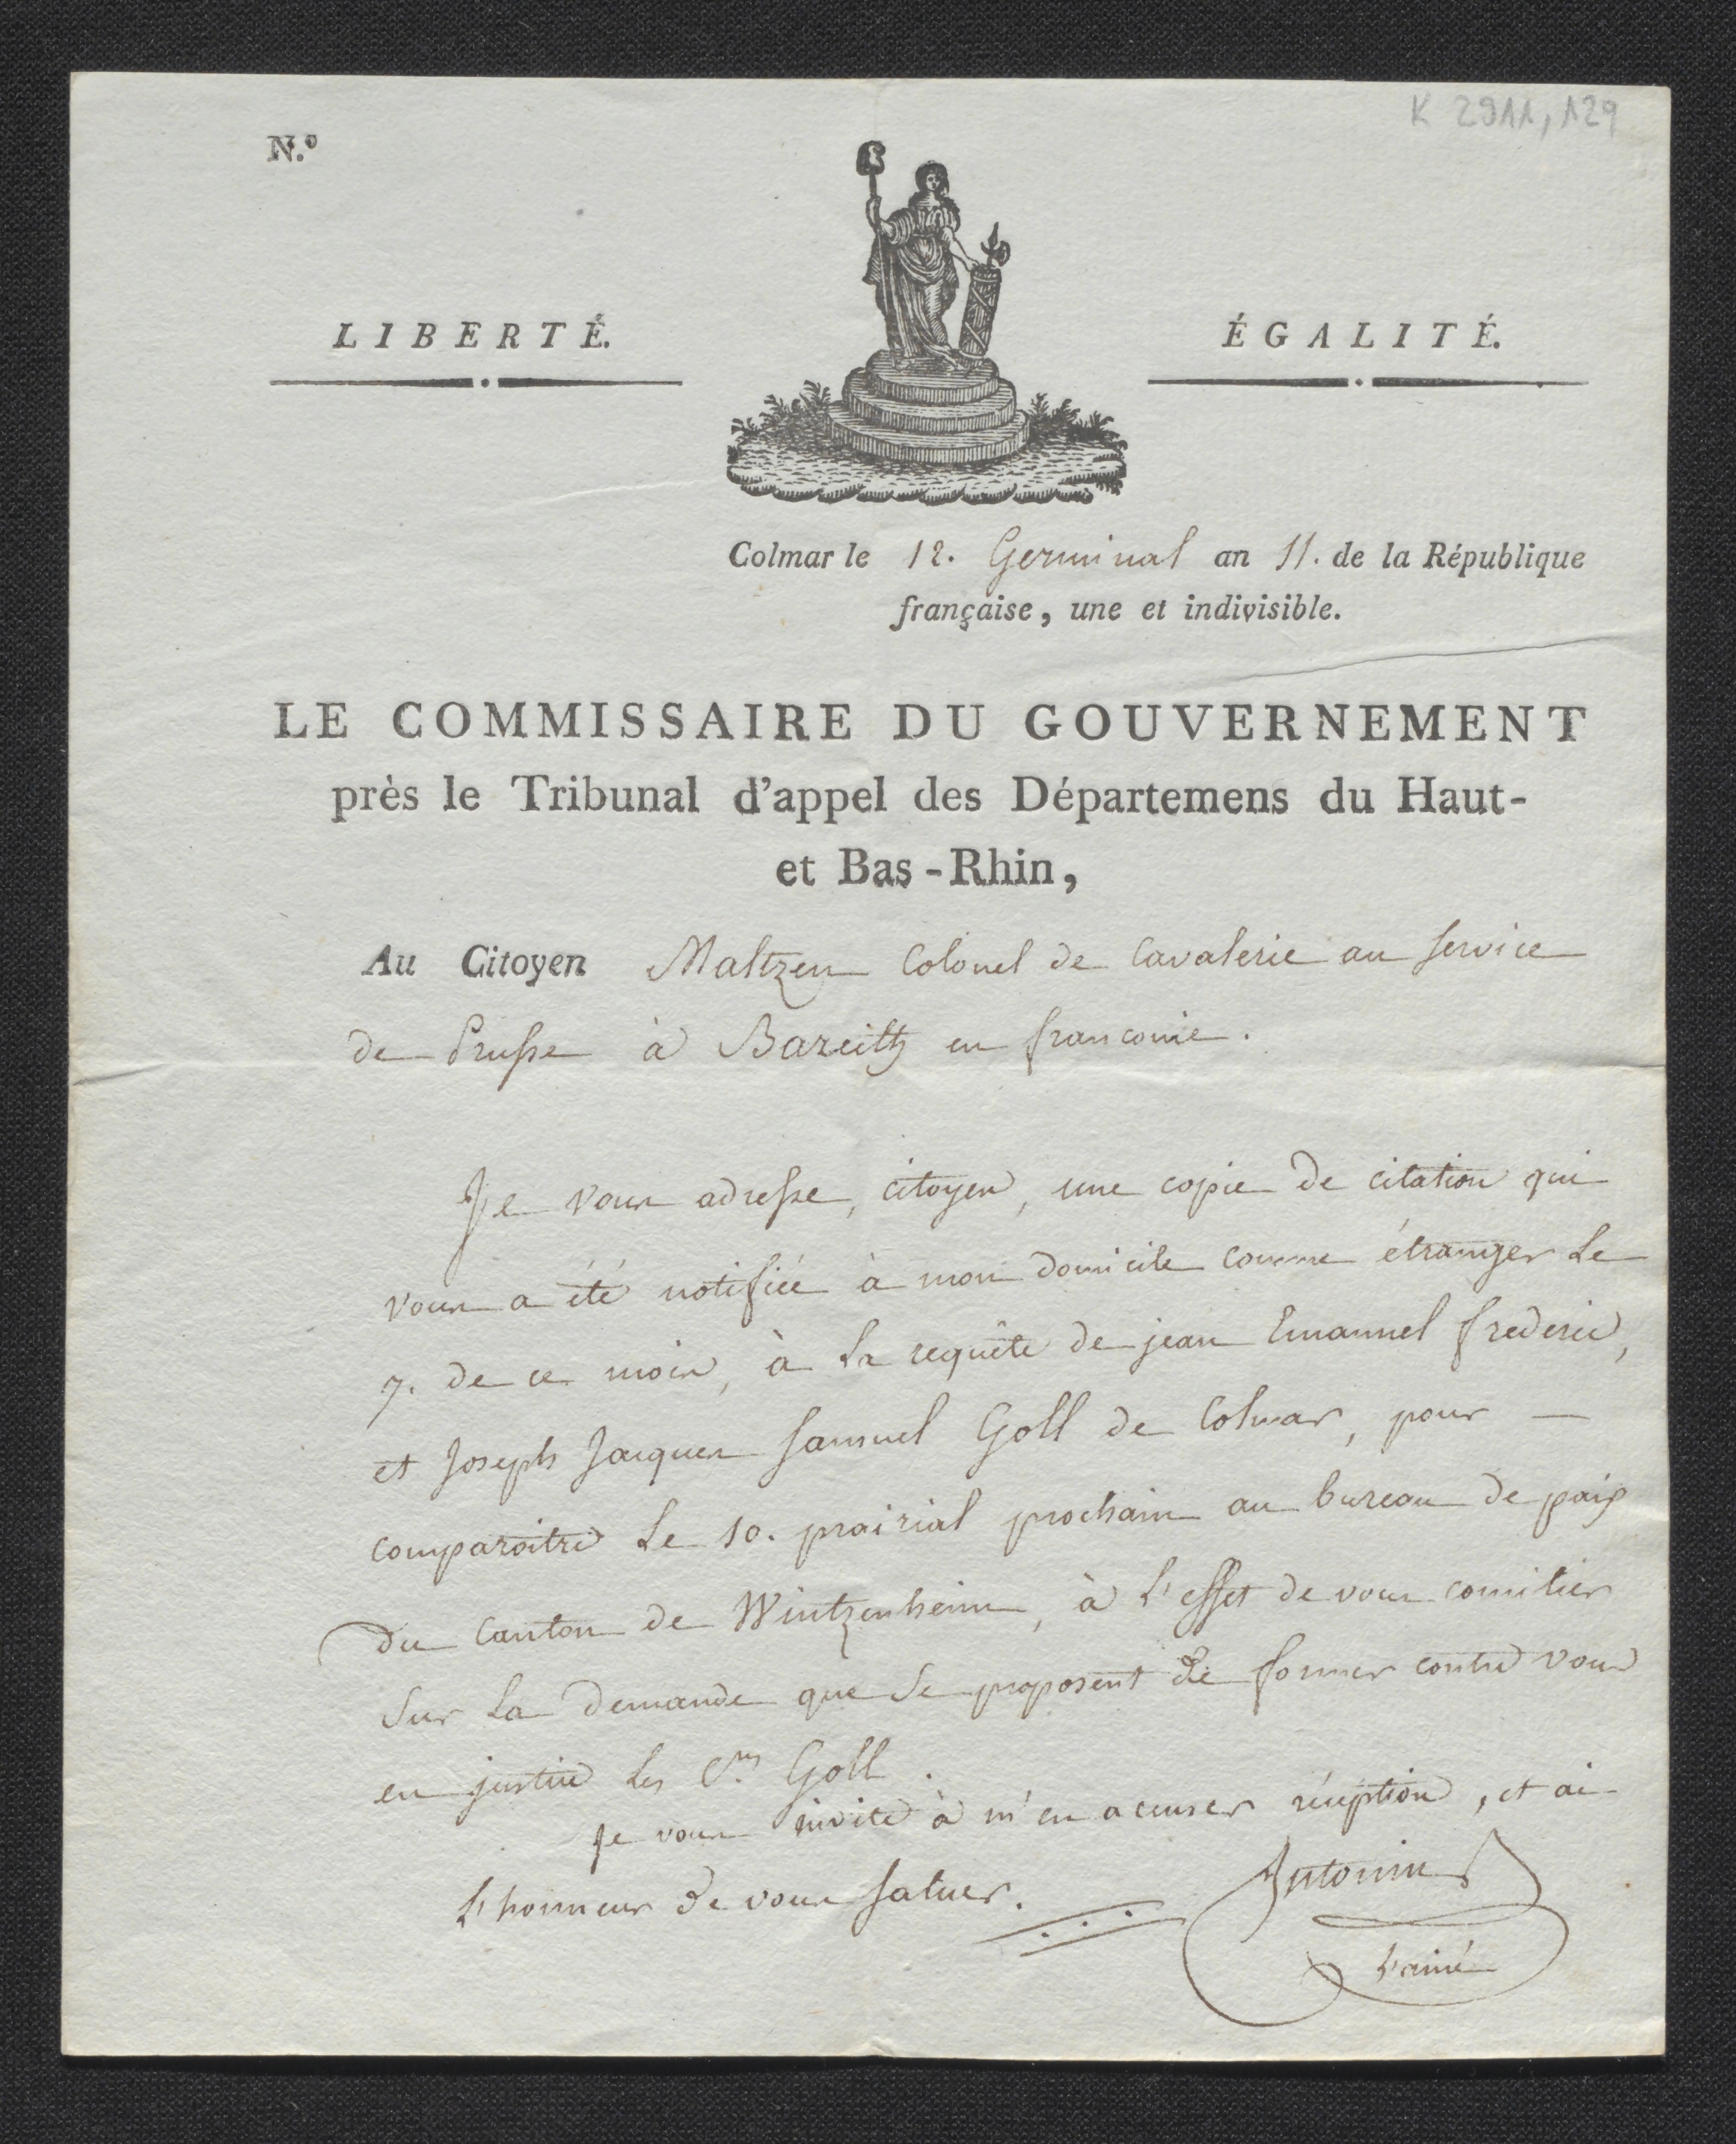 K 2911, 129
N.º
LIBERTÉ.
ÉGALITÉ.
Colmar le 12. Germinal an 11. de la République
française, une et indivisible.
LE COMMISSAIRE DU GOUVERNEMENT
près le Tribunal d'appel des Départemens du Haut-
et Bas-Rhin,
Au Citoyen Maltzen Colonel de Cavalerie au service
de Prusse à Bareith en franconie.
Je vous adresse, citoyen, une copie de citation qui
vous a été notifiée à mon domicile comme étranger le
7. de ce mois, à la requête de jean Emanuel frederic,
et Joseph Jacques Samuel Goll de Colmar, pour —
comparoitre le 10. prairial prochain au bureau de paix
du Canton de Wintzenheim, à l'effet de vous concilier
sur la demande que se proposent de former contre vous
en justice les C.ens Goll.
Je vous invite à m'en accuser réception, et ai
l'honneur de vous saluer.
Antonin
l'ainé